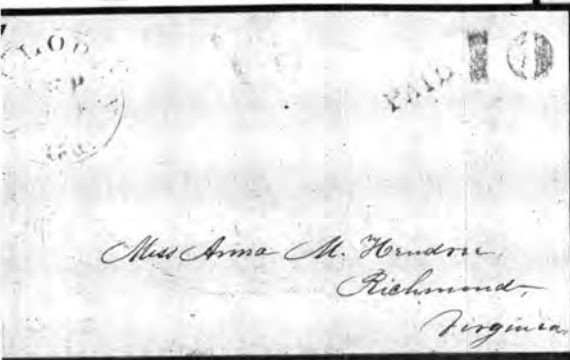 PAID 10
Miss Anna M. Herndon,
Richmond,
Virginia.